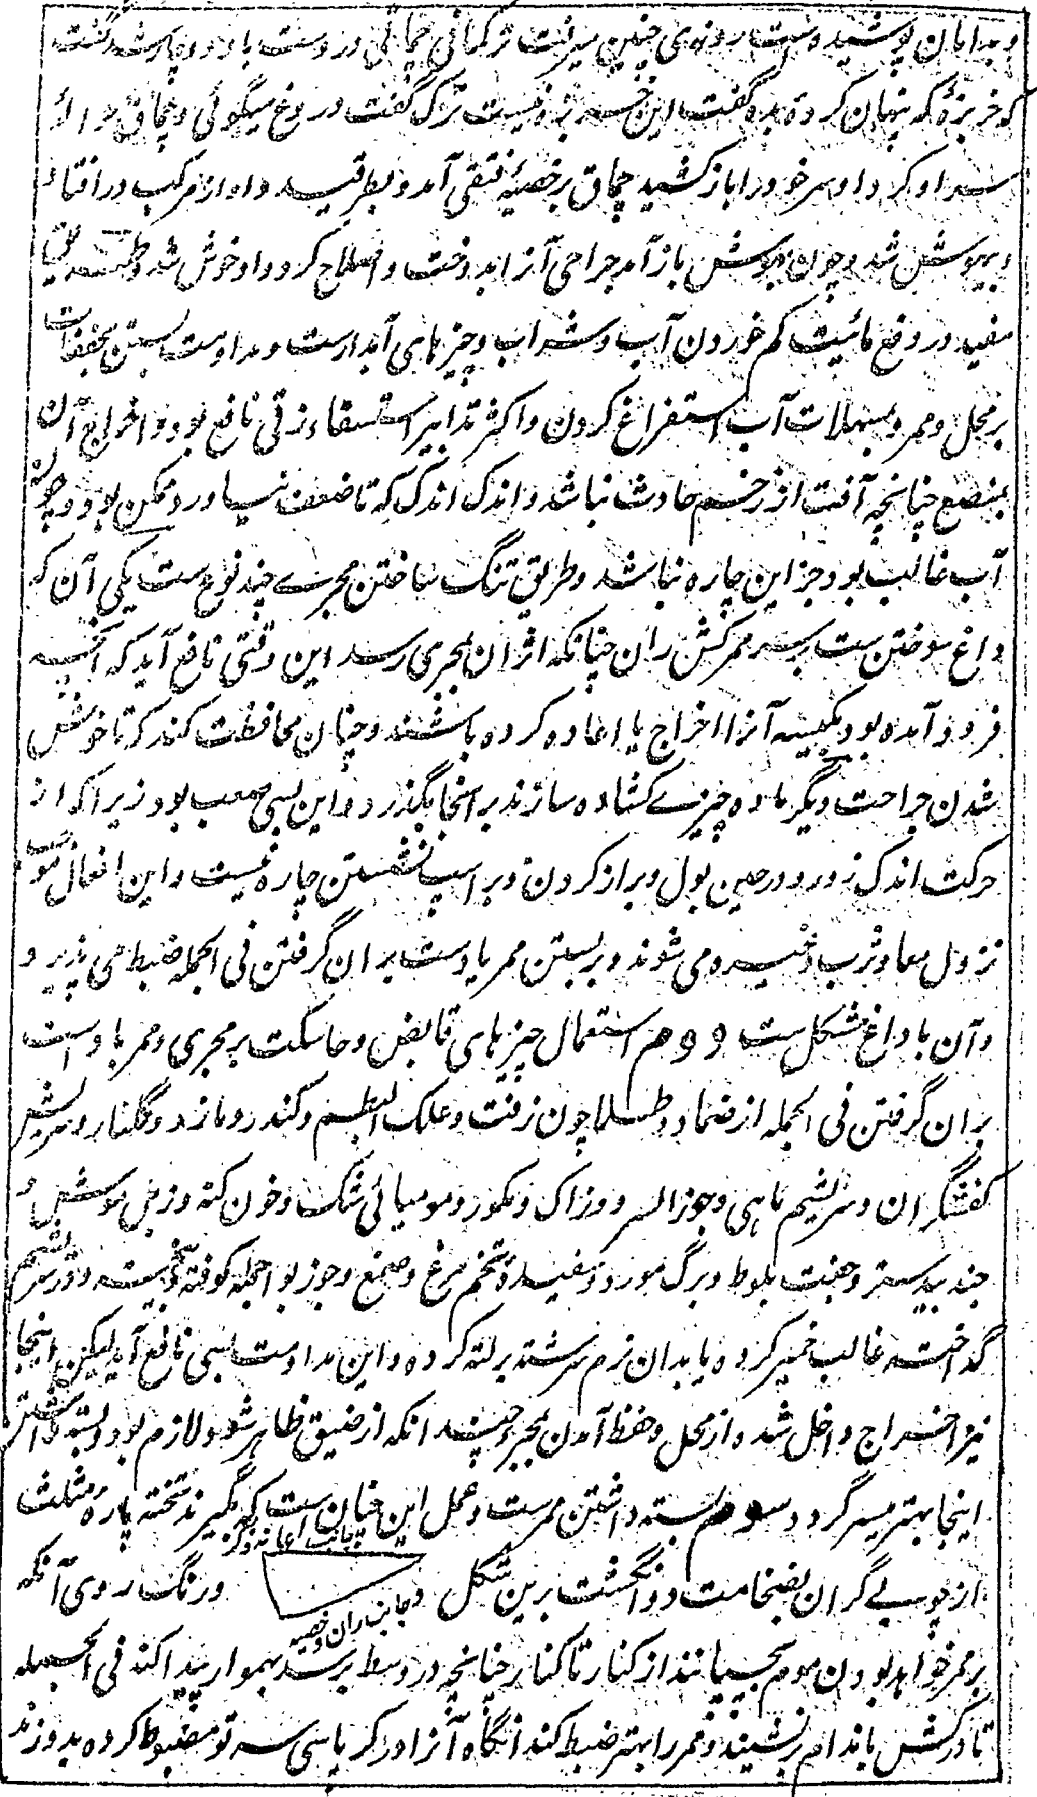 و بدامان پوشیده داشت روزی چنین میرفت ترکمانی چماقی در دست با او دوچار شد گفت
که خربزهٔ که پنهان کردهٔ بده گفت این خربزه نیست ترک گفت دروغ میگوئی و چماق حوالهٔ
سر او کرد او سر خود را باز کشید چماق بر خصیهٔ فتقی آمد و بطرقید و او از مرکب در افتاد
و بیهوش شد و چون بهوش باز آمد جراحی آنرا بدوخت و اصلاح کرد و او خوش شد و طریق
مفید در دفع مائیت کم خوردن آب و شراب و چیزهای آبدارست و مداومت بستن مجففات
بر محل و ممر و بمسهلات آب استفراغ کردن و اکثر تدابیر استسقاء زقی نافع بود و اخراج آن
بمبضع چنانچه آفت از زخم حادث نباشد و اندک اندک که تا ضعف نیاورد ممکن بود و چون
آب غالب بود جز این چاره نباشد و طریق تنگ ساختن مجرے چند نوع ست یکی آن که
داغ سوختن ست بر سر ممر کش ران چنانکه اثر آن بمجری رسد این وقتی نافع آید که آنچه
فرود آمده بود بکیسه آنرا اخراج یا اعاده کرده باشند و چنان محافظت کنند که تا خوش
شدن جراحت دیگر ماده چیزے کشاده سازند بر آنجا بگذرد و این بسی صعب بود زیرا که از
حرکت اندک زور و در حین بول و براز کردن و بر اسپ نشستن چاره نیست و این افعال موجب
نزول معا و ثرب و غیره می شوند و بر بستن ممر یا دست بر آن گرفتن فی الجمله ضبط می پذیرد
و آن با داغ مشکل ست دوم استعمال چیزهای قابض و ماسکت بر مجری و ممر با دست
بر آن گرفتن فی الجمله از ضماد و طلا چون زفت و علک البطم و کندر و مازو و گلنار و سریش
کفشگران و سریشم ماهی و جوز السرو و زاک و نکمور و مومیائی شک و خون کنه و زبل موش و
جند بیدستر و جفت بلوط و برگ مورد و سفیدهٔ تخم مرغ و صمغ و جوز بوا جمله کوفته و بیخته و در سریشم
گداخته غالب خمیر کرده یا بدان نرم سرشته بر لته کرده و این مداومت بسی نافع آید لیکن اینجا
نیز اخراج داخل شده از محل و حفظ آمدن بچیز چند انکه از ضیق ظاهر شود لازم بود و بسته داشتن
اینجا بهتر میسر گردد سوم بسته داشتن ممرست و عمل این چنان ست که بگیرند تخته پاره مثلث
جانب اعانه و کمر
از چوبے گران بضخامت دو انگشت برین شکل و رنگ روی آنکه
و جانب ران و خصیه
بر ممر خواهد بودن موم بچسپانند از کنار تا کنار چنانچه در وسط بر سر بهموار پیدا کند فی الجمله
تا در کش باندام بنشیند و ممر را بهتر ضبط کند آنگاه آنرا در کرپاسی سه تو مضبوط کرده بدوزند